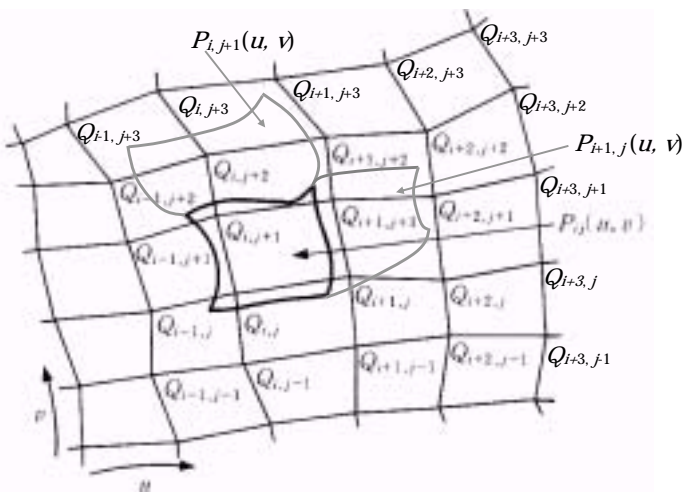 P_{i,j+1}(u, v)
Q_{i+3,j+3}
Q_{i+2,j+3}
Q_{i+1,j+3}
Q_{i,j+3}
Q_{i-1,j+3}
Q_{i+3,j+2}
P_{i+1,j}(u, v)
Q_{i+2,j+2}
Q_{i+1,j+2}
Q_{i,j+2}
Q_{i-1,j+2}
Q_{i+3,j+1}
Q_{i+2,j+1}
Q_{i,j+1}
P_{ij}(u, v)
Q_{i-1,j+1}
Q_{i+3,j}
Q_{i+2,j}
Q_{i+1,j}
Q_{i,j}
Q_{i-1,j}
Q_{i+3,j-1}
Q_{i+2,j-1}
Q_{i+1,j-1}
Q_{i,j-1}
Q_{i-1,j-1}
v
u